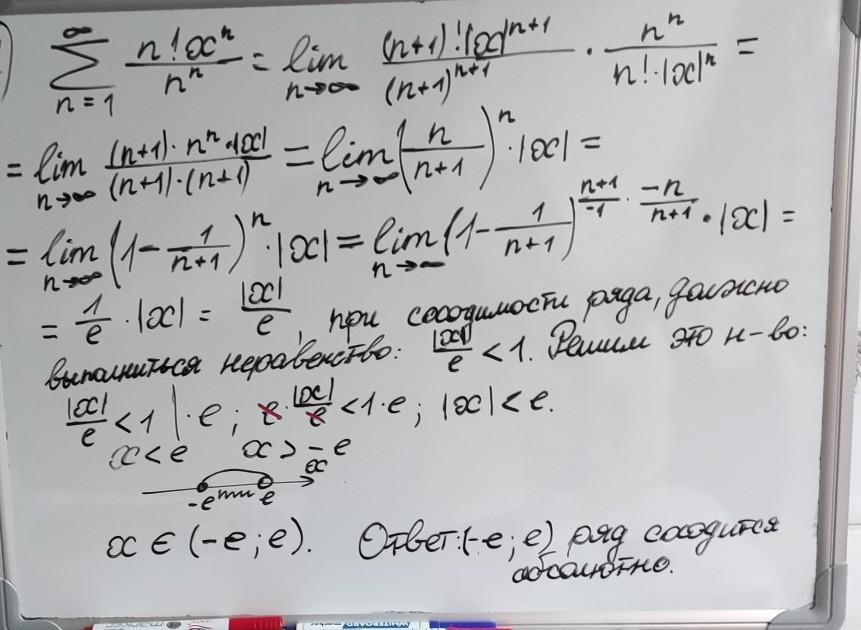 ∞ ∑ n=1 n!xⁿ/nⁿ = lim n→∞ (n+1)!|x|ⁿ⁺¹/(n+1)ⁿ⁺¹ · nⁿ/(n!·|x|ⁿ) =
= lim n→∞ (n+1)·nⁿ·|x|/((n+1)·(n+1)) = lim n→∞ (n/(n+1))ⁿ·|x| =
= lim n→∞ (1-1/(n+1))ⁿ·|x| = lim n→∞ (1-1/(n+1))^((n+1)/-1 · -n/(n+1))·|x| =
= 1/e·|x| = |x|/e, при сходимости ряда, должно
выполниться неравенство: |x|/e < 1. Решим это н-во:
|x|/e < 1 |·e; e·|x|/e < 1·e; |x| < e.
x < e x > -e
x
-e e
x ∈ (-e; e). Ответ: (-e; e) ряд сходится
абсолютно.